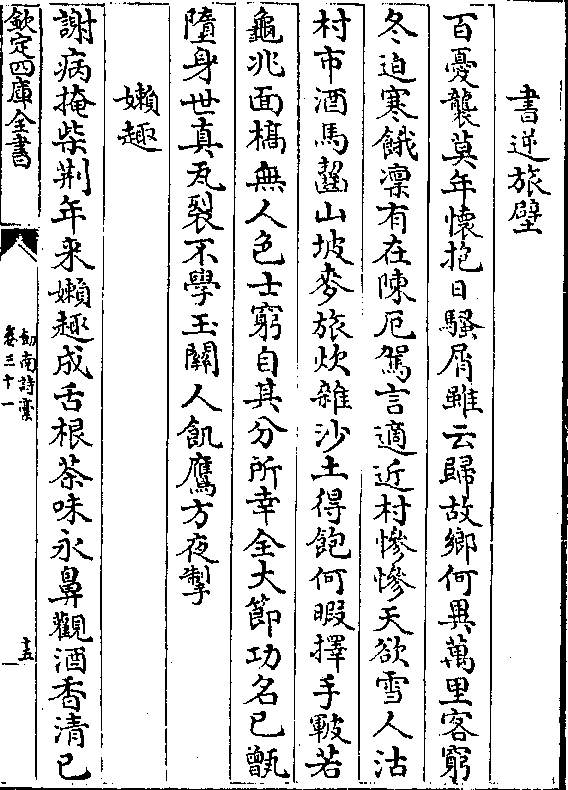 書逆旅壁
百憂襲莫年懷抱日騷屑雖云歸故鄉何異萬里客窮
冬迫寒餓凜有在陳厄駕言適近村慘慘天欲雪人沽
村市酒馬齧山坡麥旅炊雜沙土得飽何暇擇手皸若
龜兆面槁無人色士窮自其分所幸全大節功名已甑
墮身世真瓦裂不學玉關人飢鷹方夜掣
嬾趣
謝病掩柴荆年来嬾趣成舌根茶味永鼻觀酒香清已
欽定四庫全書
劍南詩藁
卷三十一
十五